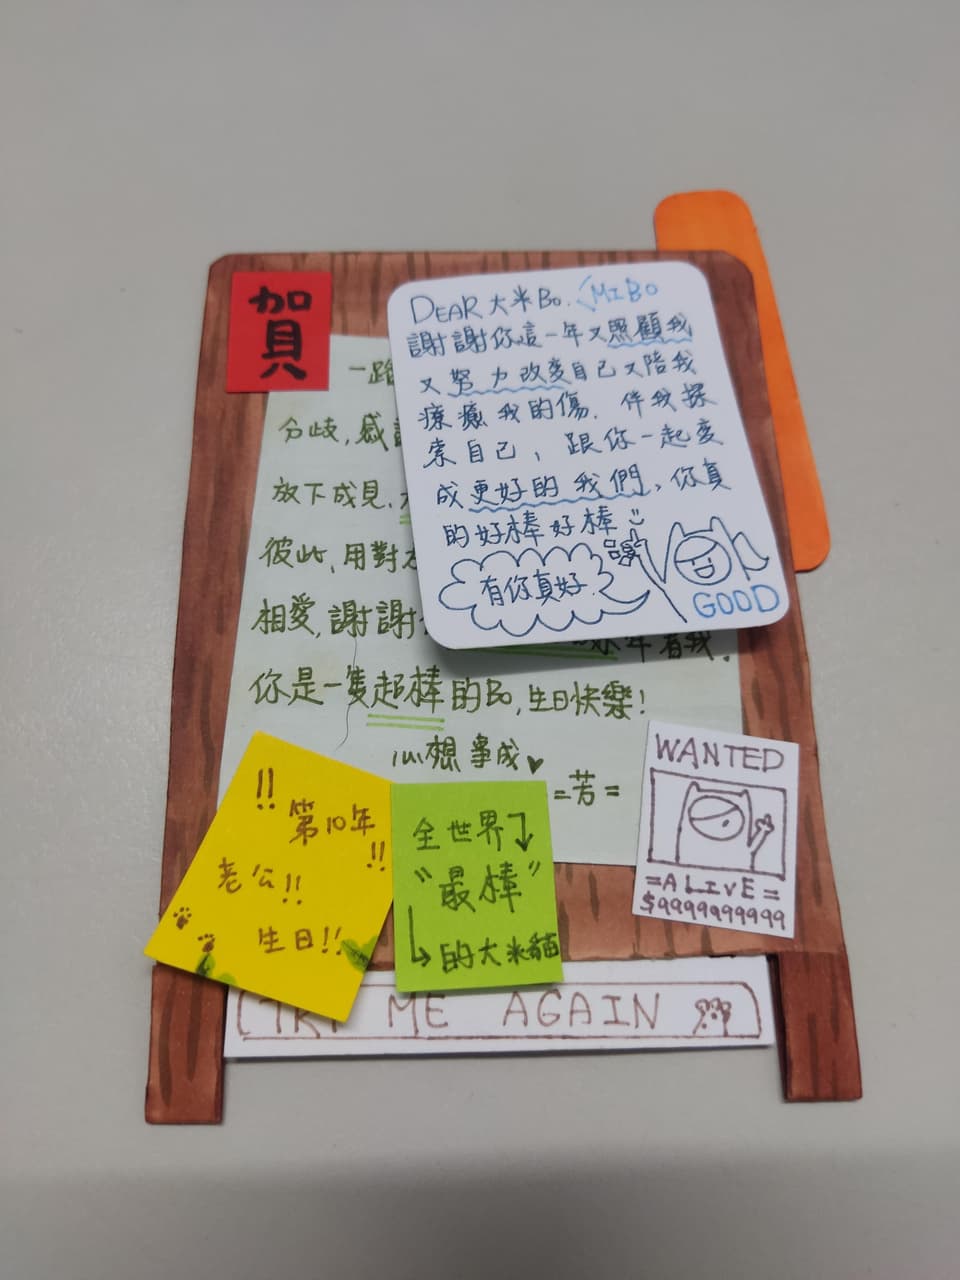 賀
DEAR 大米Bo. MIBO
謝謝你這一年又照顧我
又努力改變自己又陪我
療癒我的傷. 伴我探
索自己, 跟你一起變
成更好的我們, 你真
的好棒好棒
有你真好.
GOOD
一路
分歧, 感
放下成見.
彼此, 用對
相愛, 謝謝
年看我.
你是一隻超棒的Bo, 生日快樂!
心想事成♥
=芳=
!! 第10年
老公!! !!
生日!!
全世界
"最棒"
的大米貓
WANTED
=ALIVE=
$9999999999
TRY ME AGAIN